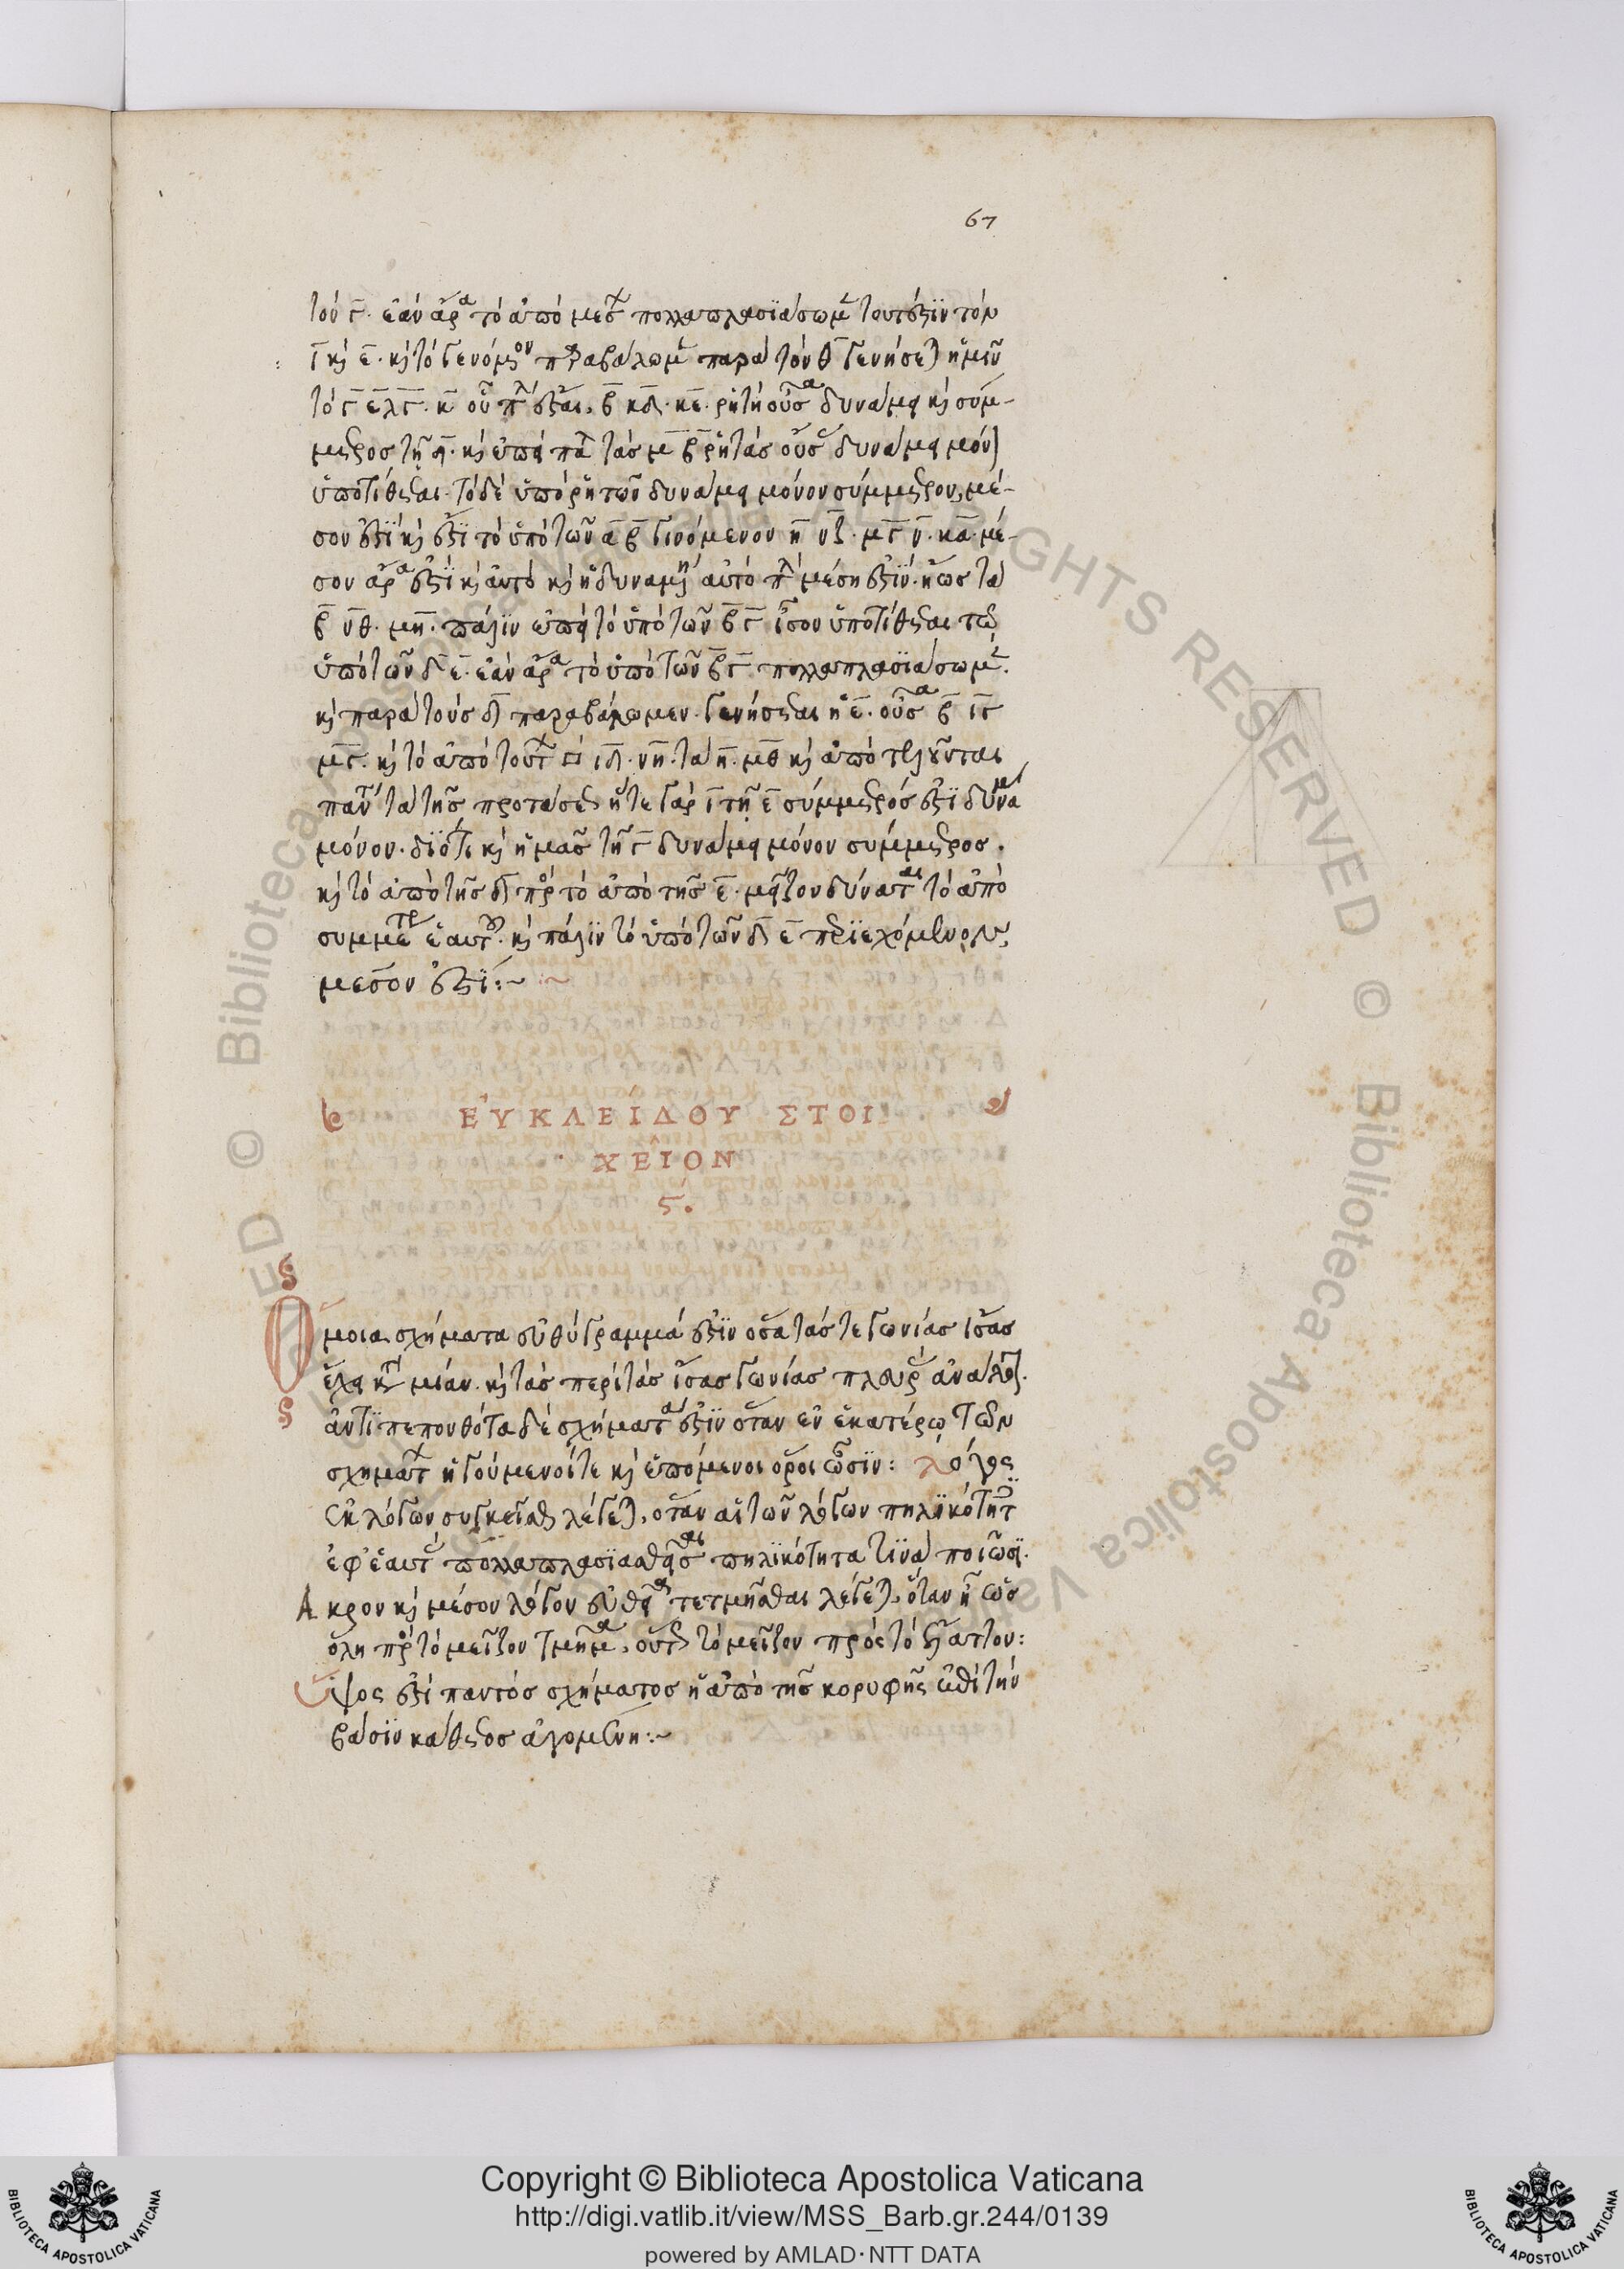 67
τὸν γ. ἐὰν ἄρα τὸ ἀπὸ μέσου πολλαπλασιάσωμεν τουτέστιν τὸν
γ καὶ ε. καὶ τὸ γενόμενον παραβάλωμεν παρὰ τὸν θ γεννήσει ἡμῖν
δυνάμει καὶ σύμ-
μετρος τῇ δυνάμει μόν
ὑποτίθεται. τὸ δὲ ὑπὸ ῥητῶν δυνάμει μόνον σύμμετρον, μέ-
σον ἐστὶ καὶ ἐστὶ τὸ ὑπὸ τῶν α β γινόμενον η νζ. μγ ν. κα. μέ-
σον ἄρα ἐστὶ καὶ αὐτὸ καὶ ἡ δυναμένη αὐτὸ μέση ἐστίν. ἤως τὰ
β νθ. μη. πάλιν ἐπεὶ τὸ ὑπὸ τῶν β γ ἴσον ὑποτίθεται τῷ
ὑπὸ τῶν δ ε. ἐὰν ἄρα τὸ ὑπὸ τῶν β γ πολλαπλασιάσωμεν.
καὶ παρὰ τοὺς δ παραβάλωμεν. γενήσεται ἡ ε. οὖσα β ιγ
μγ. καὶ τὸ ἀπὸ τούτου ιδ. νη. τὰ η. μθ καὶ ἀποτελοῦνται
πάντα τὰ τῆς προτάσεως ἥτε γὰρ γ τῇ ε σύμμετρός ἐστι δυνάμει
μόνον. διότι καὶ ἡμᾶς τῇ γ δυνάμει μόνον σύμμετρος.
καὶ τὸ ἀπὸ τῆς δ πρὸς τὸ ἀπὸ τῆς ε. μεῖζον δύναται τὸ ἀπὸ
συμμέτρου ἑαυτῇ. καὶ πάλιν τὸ ὑπὸ τῶν δ ε περιεχόμενον
μέσον ἐστί:~
ΕΥ̓ΚΛΕΊΔΟΥ ΣΤΟΙ
ΧΕΙ͂ΟΝ
ς.
Ὅμοια σχήματα εὐθύγραμμά ἐστιν ὅσα τάς τε γωνίας ἴσας
ἔχει κατὰ μίαν. καὶ τὰς περὶ τὰς ἴσας γωνίας πλευρὰς ἀνάλογον.
ἀντιπεπονθότα δὲ σχήματά ἐστιν ὅταν ἐν ἑκατέρῳ τῶν
σχημάτων ἡγούμενοί τε καὶ ἑπόμενοι ὅροι ὦσιν: λόγος
ἐκ λόγων συγκεῖσθαι λέγεται, ὅταν αἱ τῶν λόγων πηλικότητες
ἐφ' ἑαυτὰς πολλαπλασιασθεῖσαι πηλικότητα τινὰ ποιῶσι.
Ἄκρον καὶ μέσον λόγον εὐθεῖα τετμῆσθαι λέγεται, ὅταν ᾖ ὡς
ὅλη πρὸς τὸ μεῖζον τμῆμα, οὕτως τὸ μεῖζον πρὸς τὸ ἔλαττον:
Ὕψος ἐστὶ παντὸς σχήματος ἡ ἀπὸ τῆς κορυφῆς ἐπὶ τὴν
βάσιν κάθετος ἀγομένη:~
Copyright © Biblioteca Apostolica Vaticana
http://digi.vatlib.it/view/MSS_Barb.gr.244/0139
powered by AMLAD·NTT DATA